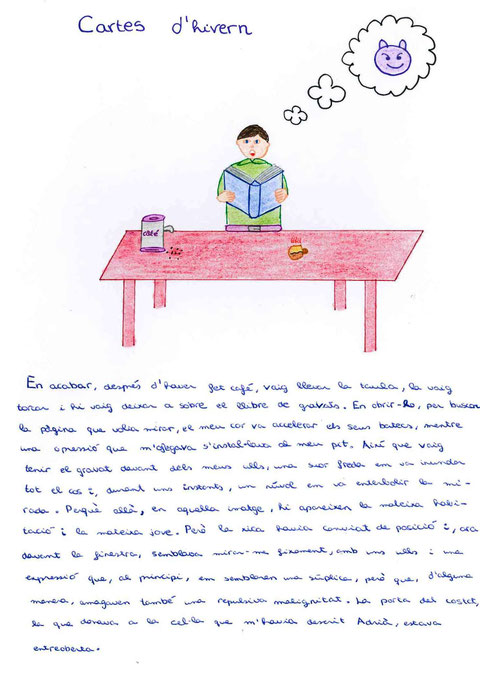 Cartes d'hivern
CAFÉ
En acabar, després d'haver fet café, vaig llevar la taula, la vaig
torcar i hi vaig deixar a sobre el llibre de gravats. En obrir-lo, per buscar
la pàgina que volia mirar, el meu cor va accelerar els seus batecs, mentre
una opressió que m'ofegava s'instal·lava al meu pit. Així que vaig
tenir el gravat davant dels meus ulls, una suor freda em va inundar
tot el cos i, durant uns instants, un núvol em va enterbolir la mi-
rada. Perquè allà, en aquella imatge, hi apareixen la mateixa habi-
tació i la mateixa jove. Però la xica havia canviat de posició i, ara
davant la finestra, semblava mirar-me fixament, amb uns ulls i una
expressió que, al principi, em semblaren una súplica, però que, d'alguna
manera, amagaven també una repulsiva malignitat. La porta del costat,
la que donava a la cel·la que m'havia descrit Adrià, estava
entreoberta.